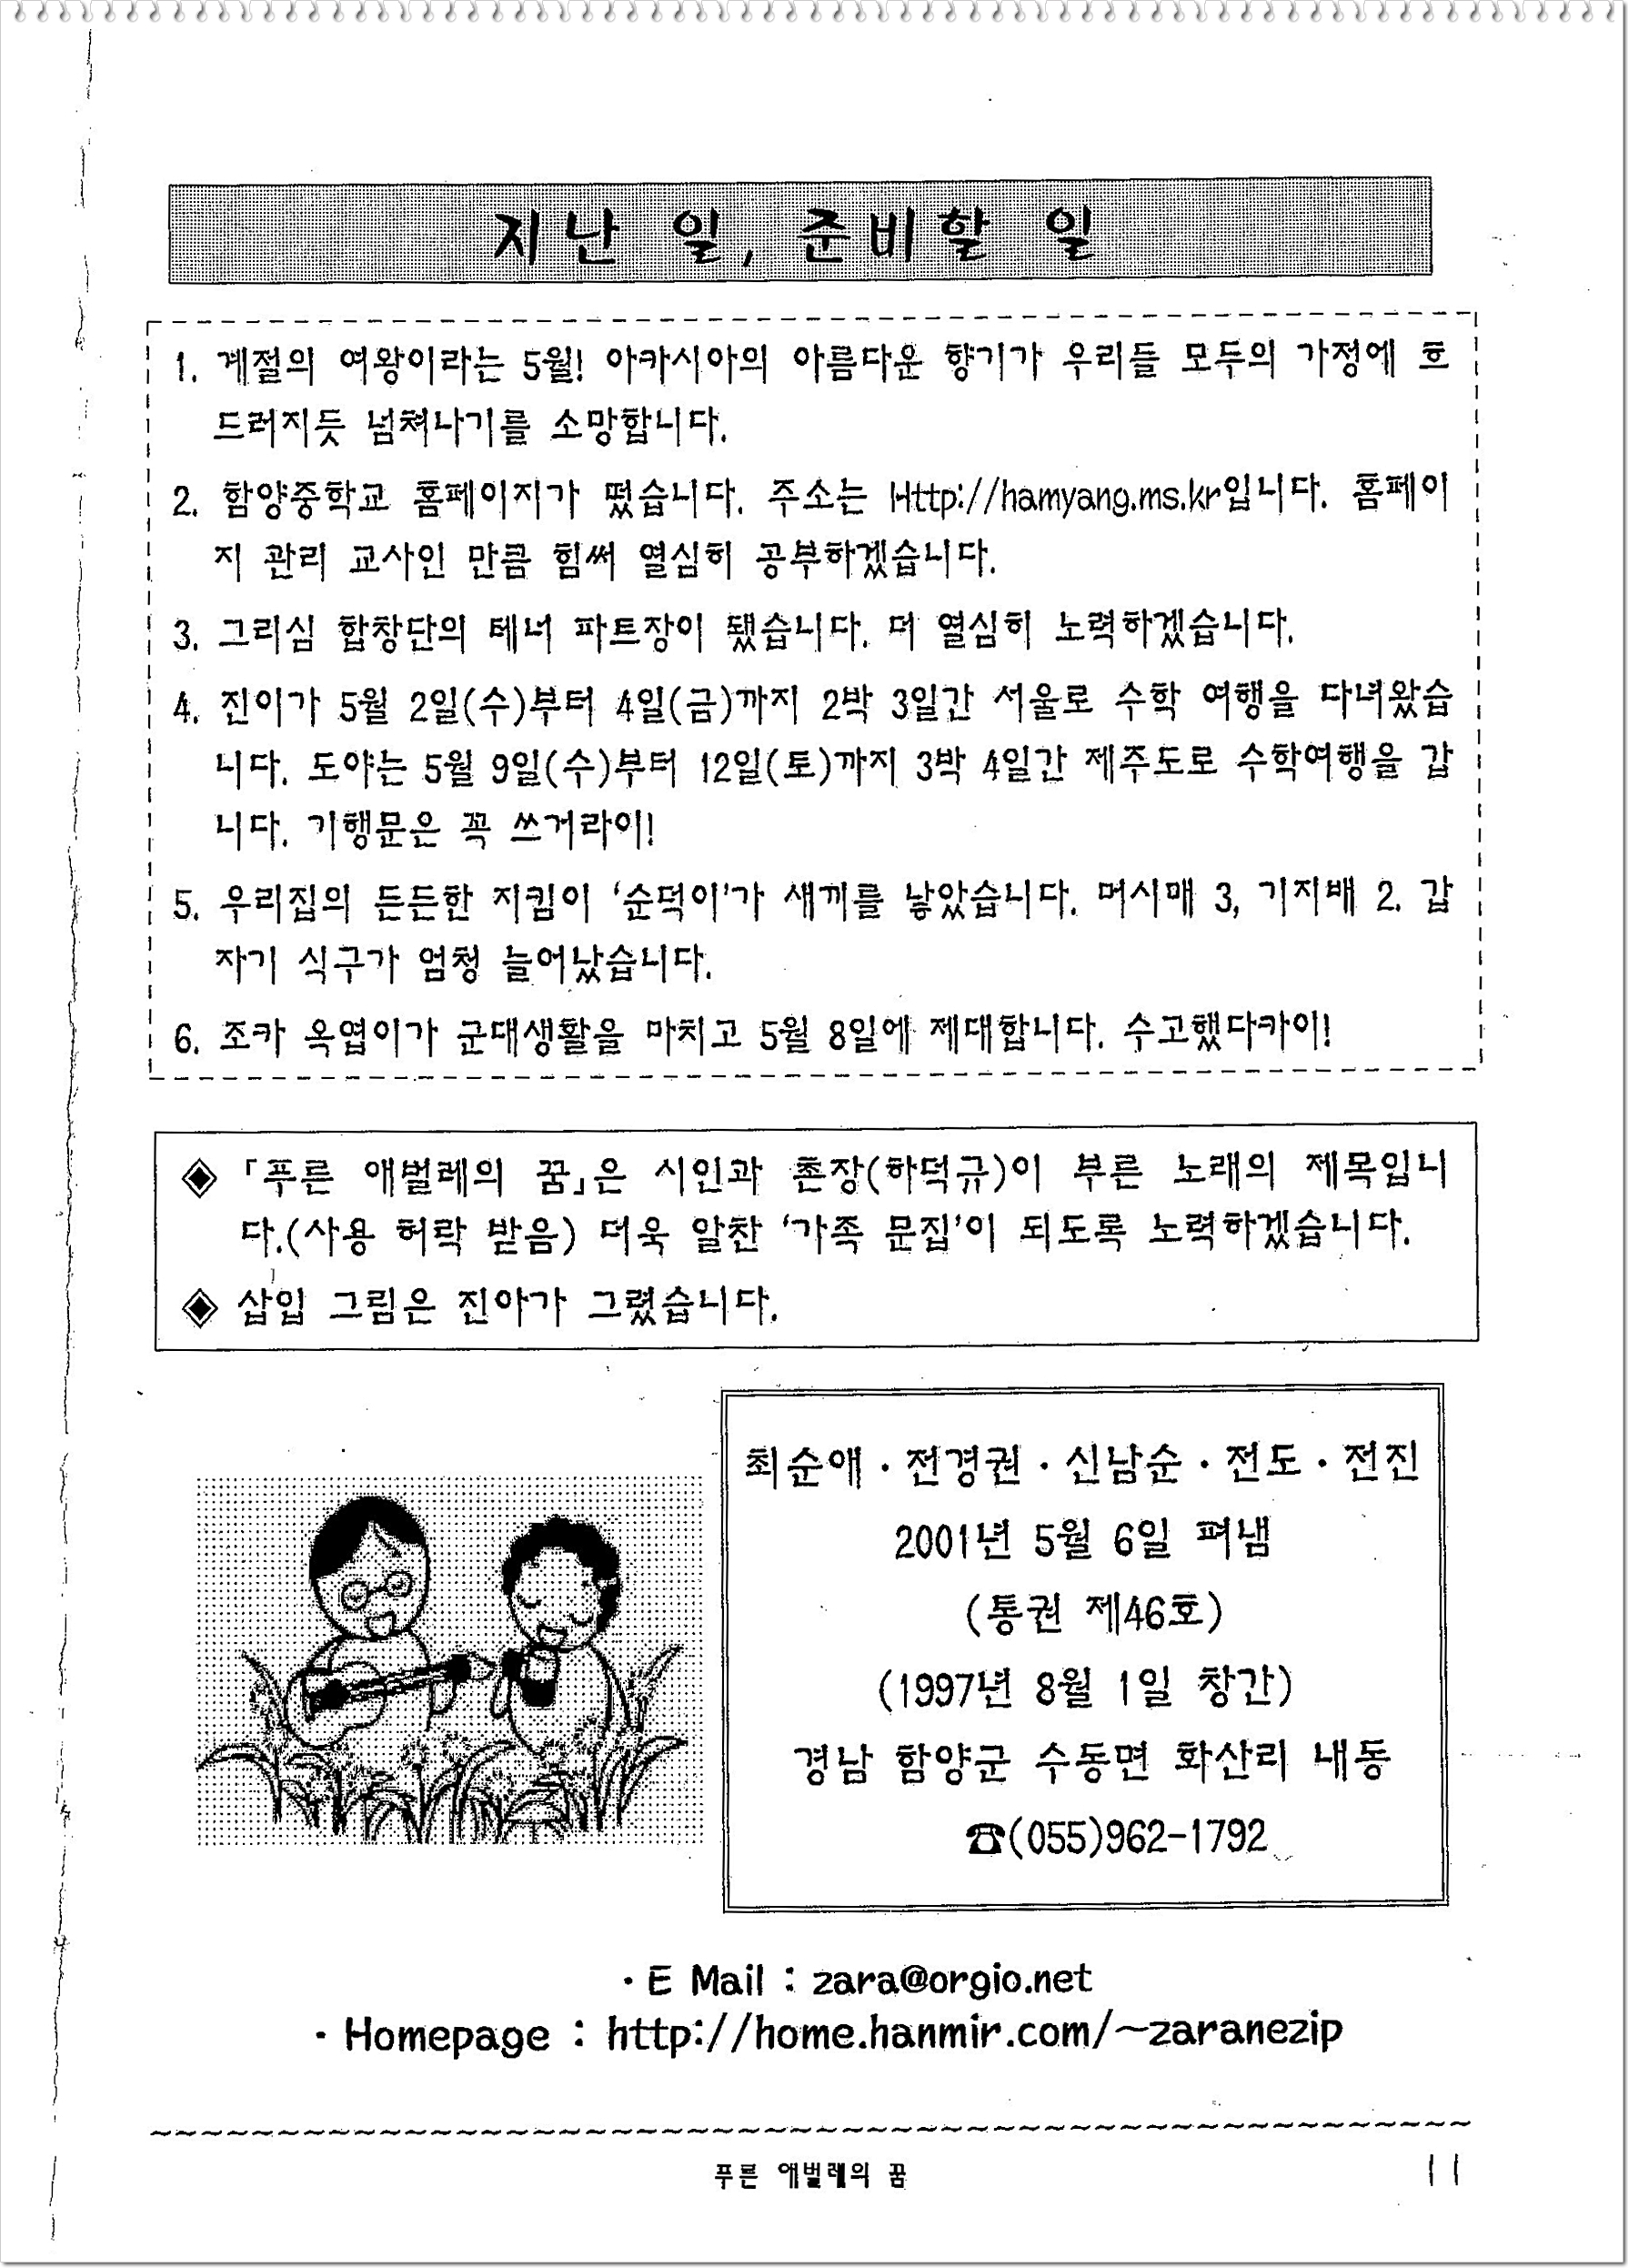 지난 일, 준비할 일
1. 계절의 여왕이라는 5월! 아카시아의 아름다운 향기가 우리들 모두의 가정에 흐
드러지듯 넘쳐나기를 소망합니다.
2. 함양중학교 홈페이지가 떴습니다. 주소는 Http://hamyang.ms.kr입니다. 홈페이
지 관리 교사인 만큼 힘써 열심히 공부하겠습니다.
3. 그리심 합창단의 테너 파트장이 됐습니다. 더 열심히 노력하겠습니다.
4. 진이가 5월 2일(수)부터 4일(금)까지 2박 3일간 서울로 수학 여행을 다녀왔습
니다. 도야는 5월 9일(수)부터 12일(토)까지 3박 4일간 제주도로 수학여행을 갑
니다. 기행문은 꼭 쓰거라이!
5. 우리집의 든든한 지킴이 '순덕이'가 새끼를 낳았습니다. 머시매 3, 기지배 2. 갑
자기 식구가 엄청 늘어났습니다.
6. 조카 옥엽이가 군대생활을 마치고 5월 8일에 제대합니다. 수고했다카이!
◈ 「푸른 애벌레의 꿈」은 시인과 촌장(하덕규)이 부른 노래의 제목입니
다.(사용 허락 받음) 더욱 알찬 '가족 문집'이 되도록 노력하겠습니다.
◈ 삽입 그림은 진아가 그렸습니다.
최순애·전경권·신남순·전도·전진
2001년 5월 6일 펴냄
(통권 제46호)
(1997년 8월 1일 창간)
경남 함양군 수동면 화산리 내동
☎(055)962-1792
· E Mail : zara@orgio.net
· Homepage : http://home.hanmir.com/~zaranezip
푸른 애벌레의 꿈
11